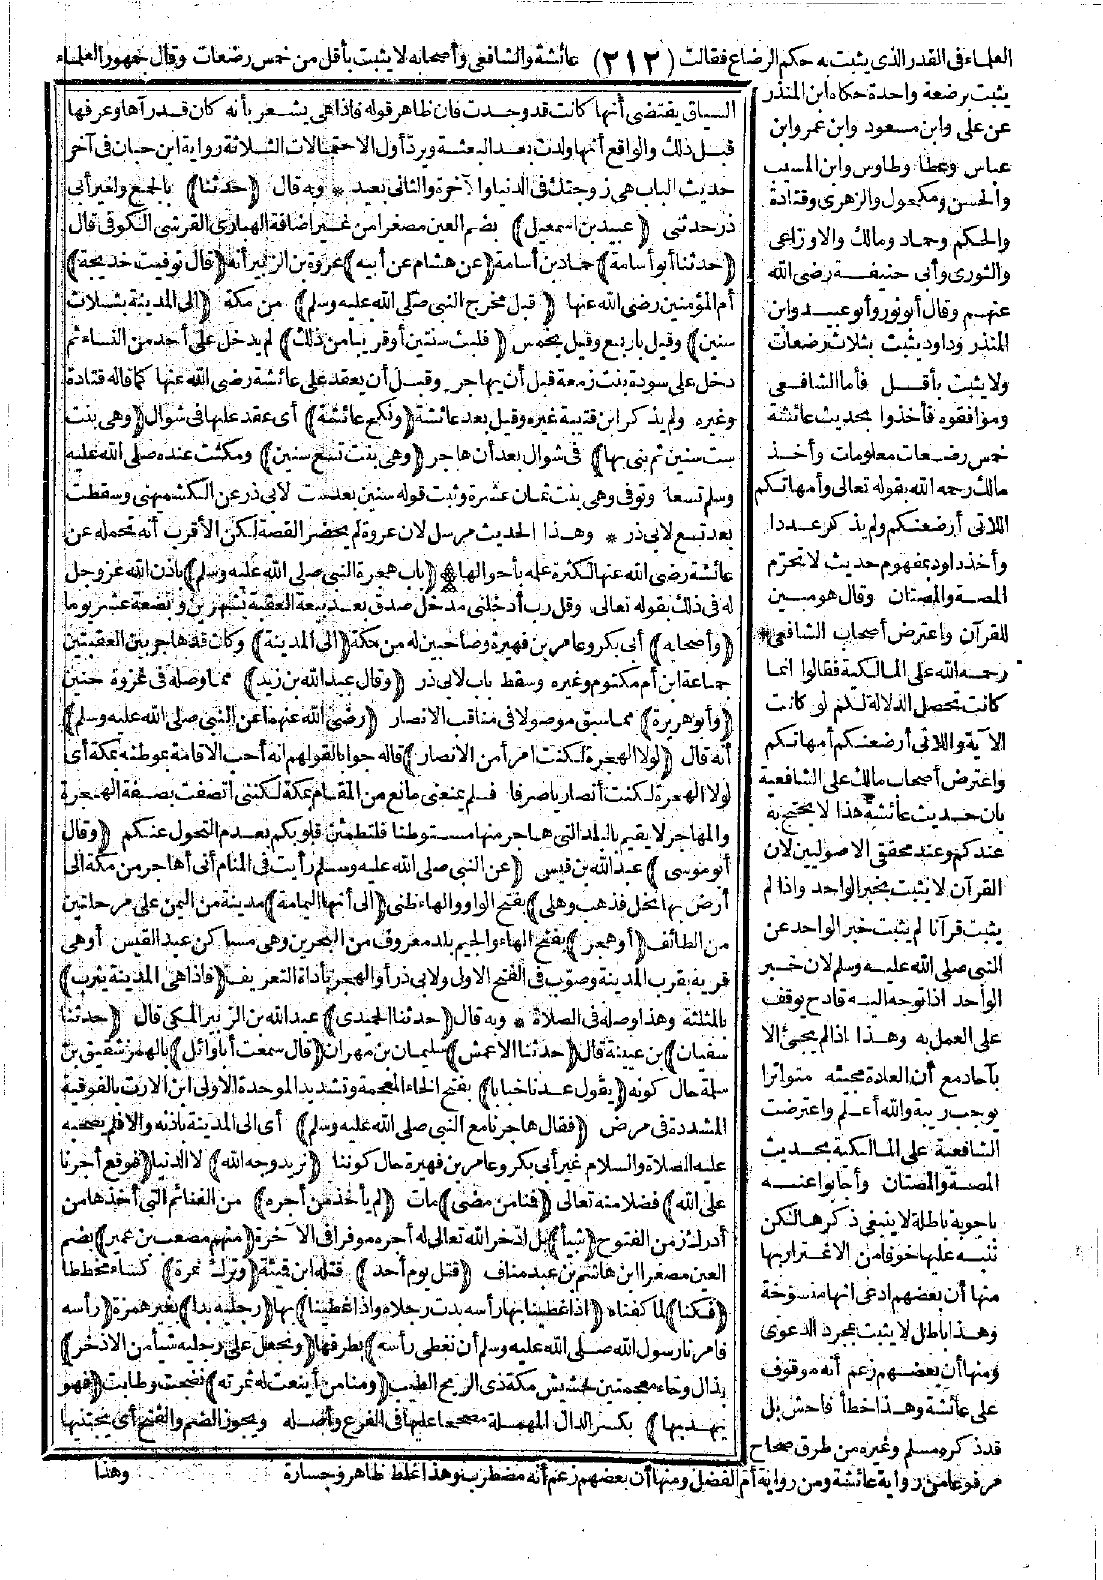 العلماء فى القدر الذى يثبت به حكم الرضاع فقالت (٢١٢) عائشة والشافعى وأصحابه لا يثبت بأقل من خمس رضعات وقال جمهور العلماء
يثبت برضعة واحدة حكاه ابن المنذر
عن على وابن مسعود وابن عمر وابن
عباس وعطاء وطاوس وابن المسيب
والحسن ومكحول والزهرى وقتادة
والحكم وحماد ومالك والاوزاعى
والثورى وأبى حنيفة رضى الله
عنهم وقال أبو ثور وأبو عبيد وابن
المنذر وداود يثبت بثلاث رضعات
ولا يثبت بأقل فأما الشافعى
وموافقوه فأخذوا بحديث عائشة
خمس رضعات معلومات وأخذ
مالك رحمه الله بقوله تعالى وأمهاتكم
اللاتى أرضعنكم ولم يذكر عددا
وأخذ داود بمفهوم حديث لا تحرم
المصة والمصتان وقال هو مبين
للقرآن واعترض أصحاب الشافعى
رحمه الله على المالكية فقالوا انما
كانت تحصل الدلالة لكم لو كانت
الآية واللاتى أرضعنكم أمهاتكم
واعترض أصحاب مالك على الشافعية
بان حديث عائشة هذا لا يحتج به
عندكم وعند محققى الاصوليين لان
القرآن لا يثبت بخبر الواحد واذا لم
يثبت قرآنا لم يثبت خبر الواحد عن
النبى صلى الله عليه وسلم لان خبر
الواحد اذا توجه اليه قادح يوقف
على العمل به وهذا اذا لم يجئ الا
بآحاد مع أن العادة مجيئه متواترا
يوجب ريبة والله أعلم واعترضت
الشافعية على المالكية بحديث
المصة والمصتان وأجابوا عنه
باجوبة باطلة لا ينبغى ذكرها لكن
ننبه عليها خوفا من الاغترار بها
منها أن بعضهم ادعى انها منسوخة
وهذا باطل لا يثبت بمجرد الدعوى
ومنها أن بعضهم زعم أنه موقوف
على عائشة وهذا خطأ فاحش بل
قد ذكره مسلم وغيره من طرق صحاح
مرفوعا من رواية عائشة ومن رواية أم الفضل ومنها أن بعضهم زعم أنه مضطرب وهذا غلط ظاهر وجسارة وهذا
السياق يقتضى أنها كانت قد وجدت فان ظاهر قوله فاذا هى يشعر بأنه كان قد رآها وعرفها
قبل ذلك والواقع أنها ولدت بعد البعثة ويرد أول الاحتمالات الثلاثة رواية ابن حبان فى آخر
حديث الباب هى زوجتك فى الدنيا والآخرة والثانى بعيد * وبه قال (حدثنا) بالجمع ولغير أبى
ذر حدثنى (عبيد بن اسمعيل) بضم العين مصغرا من غير اضافة الهبارى القرشى الكوفى قال
(حدثنا أبو أسامة) حماد بن أسامة (عن هشام عن أبيه) عروة بن الزبير أنه (قال توفيت خديجة)
أم المؤمنين رضى الله عنها (قبل مخرج النبى صلى الله عليه وسلم) من مكة (الى المدينة بثلاث
سنين) وقيل باربع وقيل بخمس (فلبث سنتين أو قريبا من ذلك) لم يدخل على أحد من النساء ثم
دخل على سودة بنت زمعة قبل أن يهاجر وقبل أن يعقد على عائشة رضى الله عنها كما قاله قتادة
وغيره ولم يذكر ابن قتيبة غيره وقيل بعد عائشة (ونكح عائشة) أى عقد عليها فى شوال (وهى بنت
ست سنين ثم بنى بها) فى شوال بعد أن هاجر (وهى بنت تسع سنين) ومكثت عنده صلى الله عليه
وسلم تسعا وتوفى وهى بنت ثمان عشرة وثبت قوله سنين بعد ست لابى ذر عن الكشميهنى وسقطت
بعد تسع لابى ذر * وهذا الحديث مرسل لان عروة لم يحضر القصة لكن الأقرب أنه تحمله عن
عائشة رضى الله عنها لكثرة علمه بأحوالها (باب هجرة النبى صلى الله عليه وسلم) باذن الله عز وجل
له فى ذلك بقوله تعالى وقل رب أدخلنى مدخل صدق بعد بيعة العقبة بشهرين وبضعة عشر يوما
(وأصحابه) أبى بكر وعامر بن فهيرة وصاحبين له من مكة (الى المدينة) وكان قد هاجر بين العقبتين
جماعة ابن أم مكتوم وغيره وسقط باب لابى ذر (وقال عبد الله بن زيد) مما وصله فى غزوة حنين
(وأبو هريرة) مما سبق موصولا فى مناقب الانصار (رضى الله عنهما عن النبى صلى الله عليه وسلم)
أنه قال (لولا الهجرة لكنت امرأ من الانصار) قاله جوابا لقولهم انه أحب الاقامة بموطنه بمكة أى
لولا الهجرة لكنت أنصاريا صرفا فلم يمنعنى مانع من المقام بمكة لكننى اتصفت بصفة الهجرة
والمهاجر لا يقيم بالبلد التى هاجر منها مستوطنا فلتطمئن قلوبكم بعدم التحول عنكم (وقال
أبو موسى) عبد الله بن قيس (عن النبى صلى الله عليه وسلم رأيت فى المنام أنى أهاجر من مكة الى
أرض بها نخل فذهب وهلى) بفتح الواو والهاء ظنى (الى أنها اليمامة) مدينة من اليمن على مرحلتين
من الطائف (أو هجر) بفتح الهاء والجيم بلد معروف من البحرين وهى مساكن عبد القيس أو هى
قرية بقرب المدينة وصوب فى الفتح الاول ولابى ذر أو الهجر بأداة التعريف (فاذا هى المدينة يثرب)
بالمثلثة وهذا وصله فى الصلاة * وبه قال (حدثنا الحميدى) عبد الله بن الزبير المكى قال (حدثنا
سفيان) بن عيينة قال (حدثنا الاعمش) سليمان بن مهران (قال سمعت أبا وائل) بالهمز شقيق بن
سلمة حال كونه (يقول عدنا خبابا) بفتح الخاء المعجمة وتشديد الموحدة الاولى ابن الارت بالفوقية
المشددة فى مرض (فقال هاجرنا مع النبى صلى الله عليه وسلم) أى الى المدينة باذنه والا فلم يصحبه
عليه الصلاة والسلام غير أبى بكر وعامر بن فهيرة حال كوننا (نريد وجه الله) لا الدنيا (فوقع أجرنا
على الله) فضلا منه تعالى (فمنا من مضى) مات (لم يأخذ من أجره) من الغنائم التى أخذها من
أدرك زمن الفتوح (شيأ) بل ادخر الله تعالى له أجره موفرا فى الآخرة (منهم مصعب بن عمير) بضم
العين مصغرا ابن هاشم بن عبد مناف (قتل يوم أحد) قتله ابن قمئة (وترك نمرة) كساء مخططا
(فكنا) لما كفناه (اذا غطينا بها رأسه بدت رجلاه واذا غطينا) بها (رجليه بدا) بغير همزة (رأسه
فامرنا رسول الله صلى الله عليه وسلم أن نغطى رأسه) بطرفها (ونجعل على رجليه شيأ من الاذخر)
بذال وخاء معجمتين حشيش مكة ذى الريح الطيب (ومنا من أينعت له ثمرته) نضجت وطابت (فهو
يهدبها) بكسر الدال المهملة مصححا عليها فى الفرع وأصله ويجوز الضم والفتح أى يجتنيها